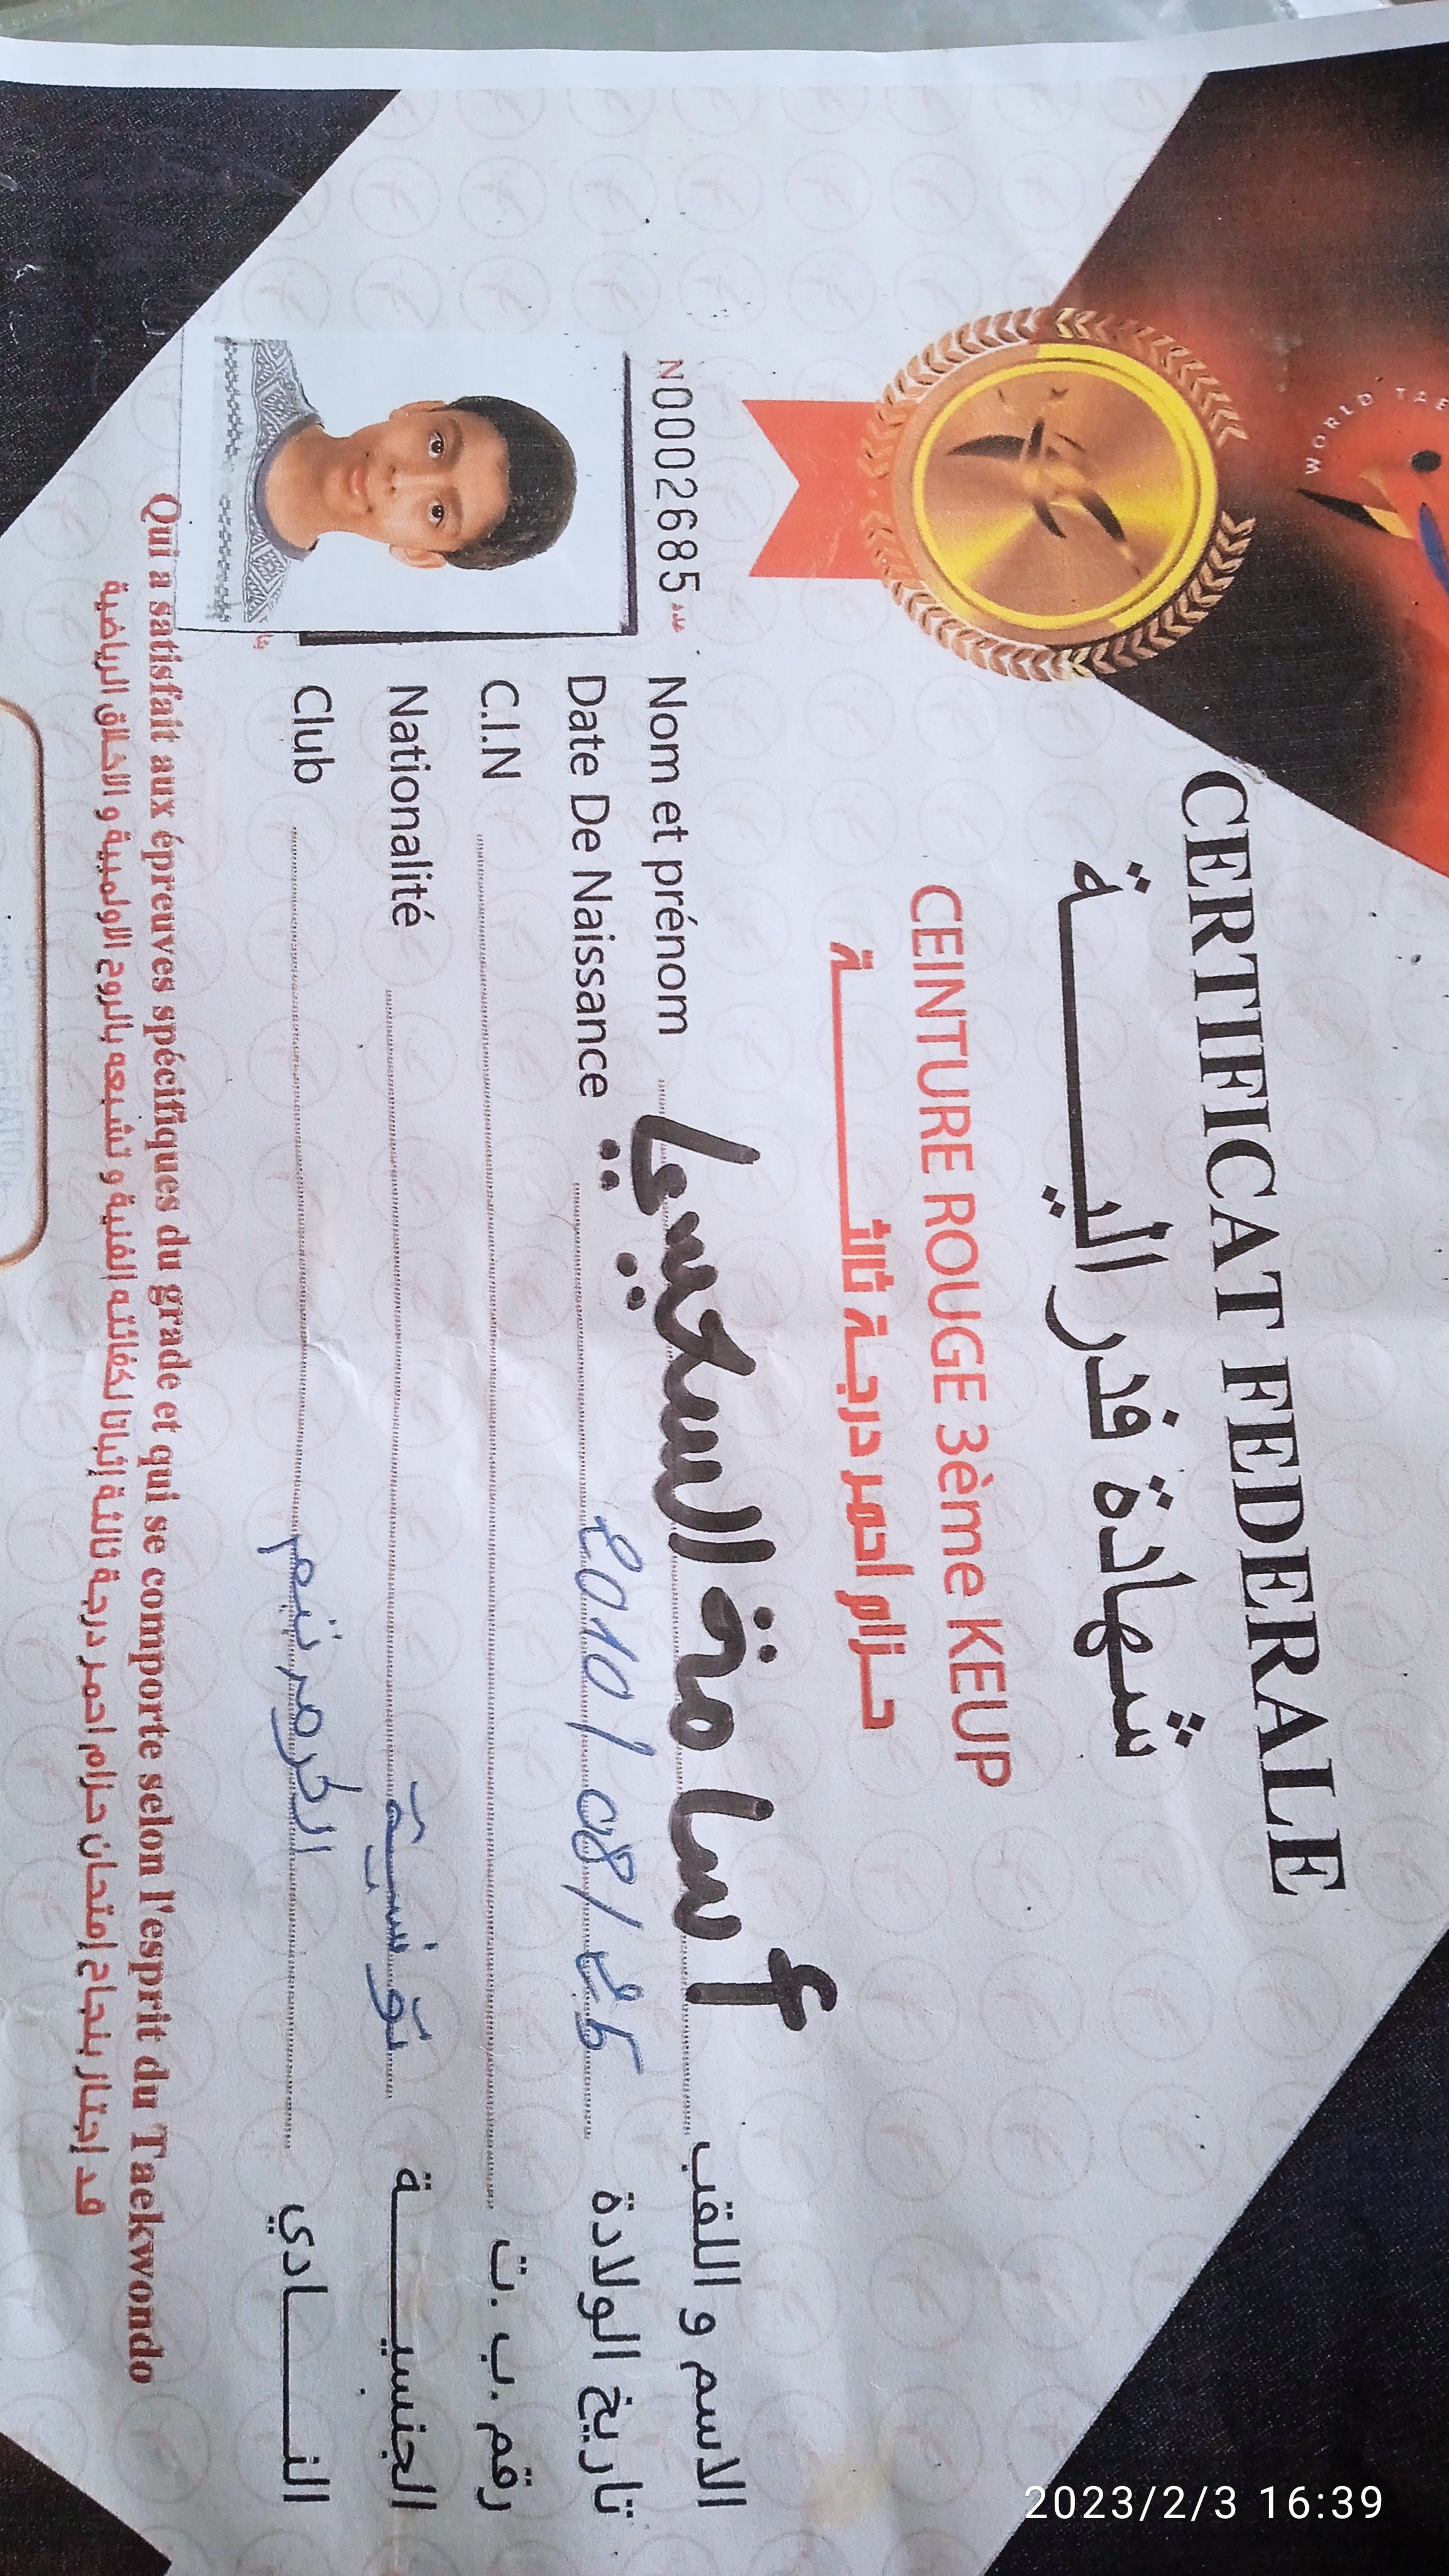 WORLD TAE
CERTIFICAT FEDERALE
شهادة فدراليــــــة
CEINTURE ROUGE 3ème KEUP
حـزام احمر درجـة ثالثـــــــة
N00002685 عدد
Nom et prénom أسامة السحيمي الاسم و اللقب
Date De Naissance 2010 / 08 / 25 تاريخ الولادة
C.I.N رقم .ب .ت
Nationalité تونسية الجنسيــــــة
Club النــــــادي
Qui a satisfait aux épreuves spécifiques du grade et qui se comporte selon l'esprit du Taekwondo
قد إجتاز بنجاح إمتحان حزام احمر درجة ثالثة إثباتا لكفائته الفنية و تشبعه بالروح الاولمبية و الاخلاق الرياضية
2023/2/3 16:39